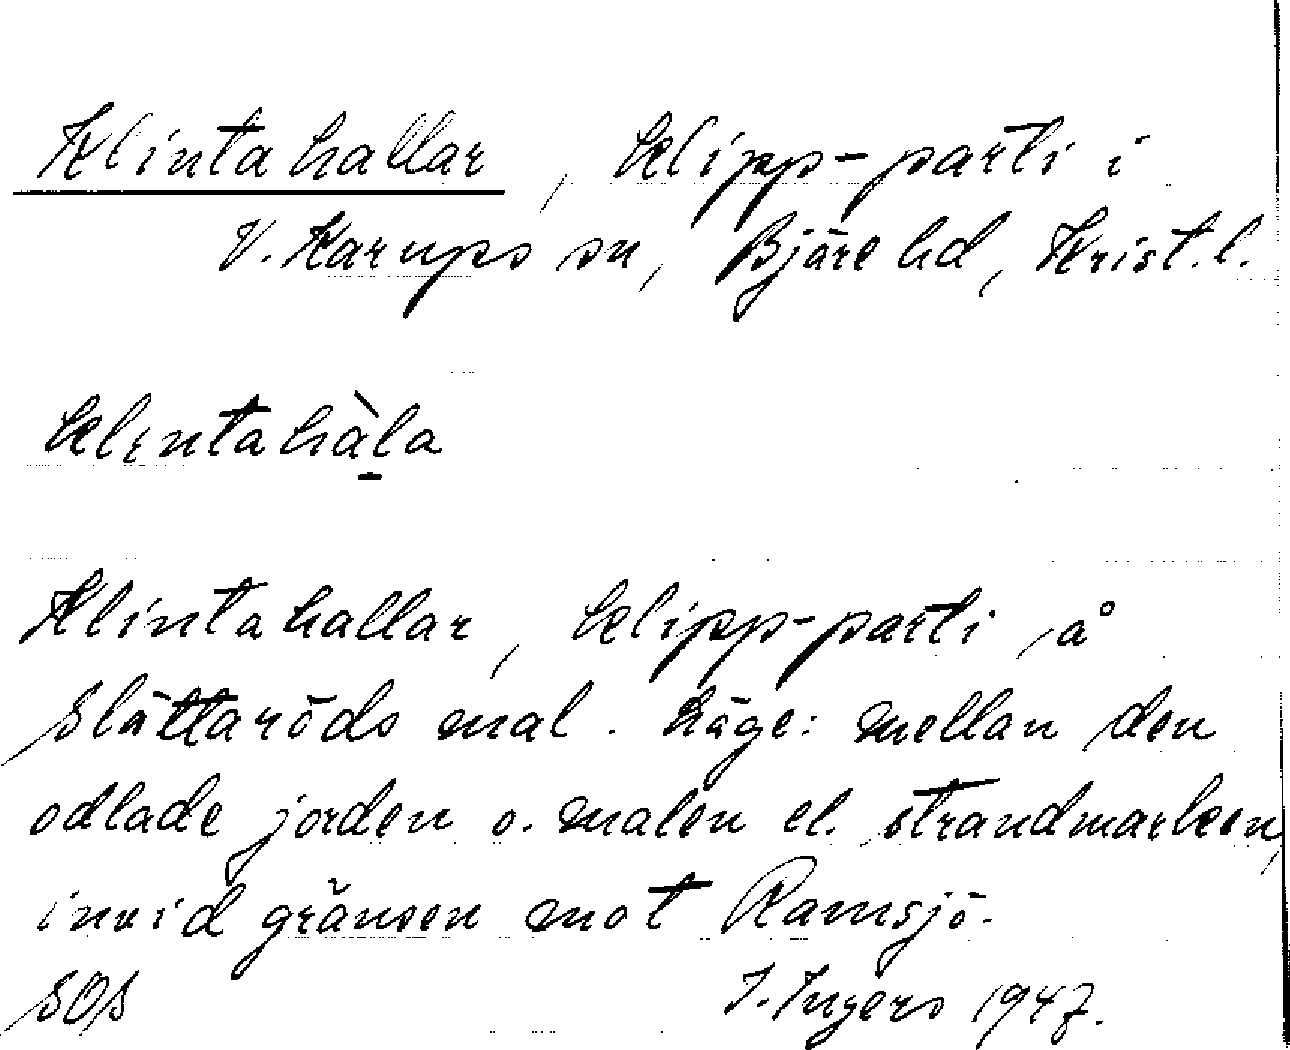 Klintahallar, klipp-parti i
V. Karups sn, Bjäre hd, Krist. l.
klentahàla
Klintahallar, klipp-parti å
Slättaröds mal. Läge: mellan den
odlade jorden o. malen el. strandmarken,
invid gränsen mot Ramsjö.
SOS I. Ingers 1947.